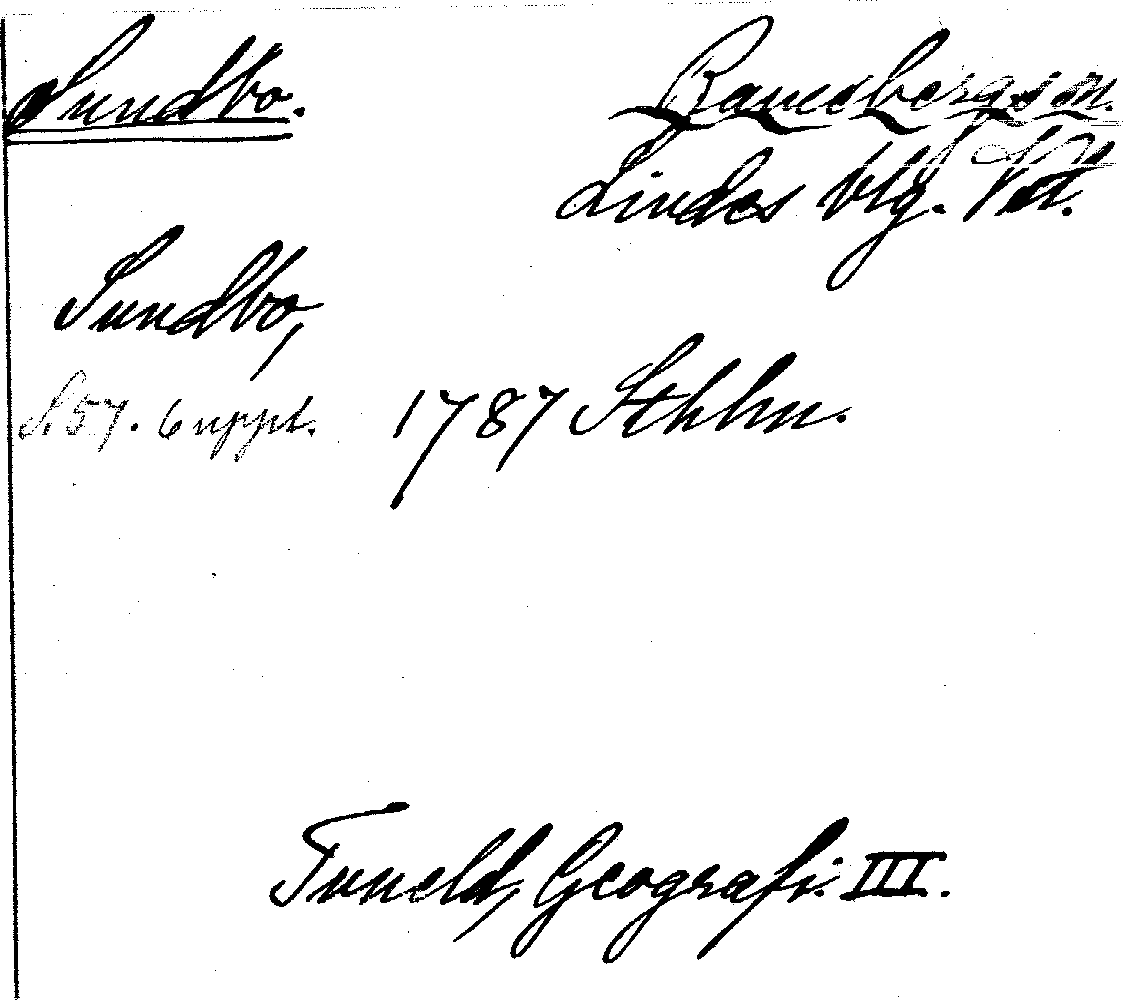 Sundbo.
Ramsbergs sn.
Lindes blg. Vstm.
Sundbo,
S. 57. 6 uppl. 1787 Sthlm.
Tuneld, Geografi. III.